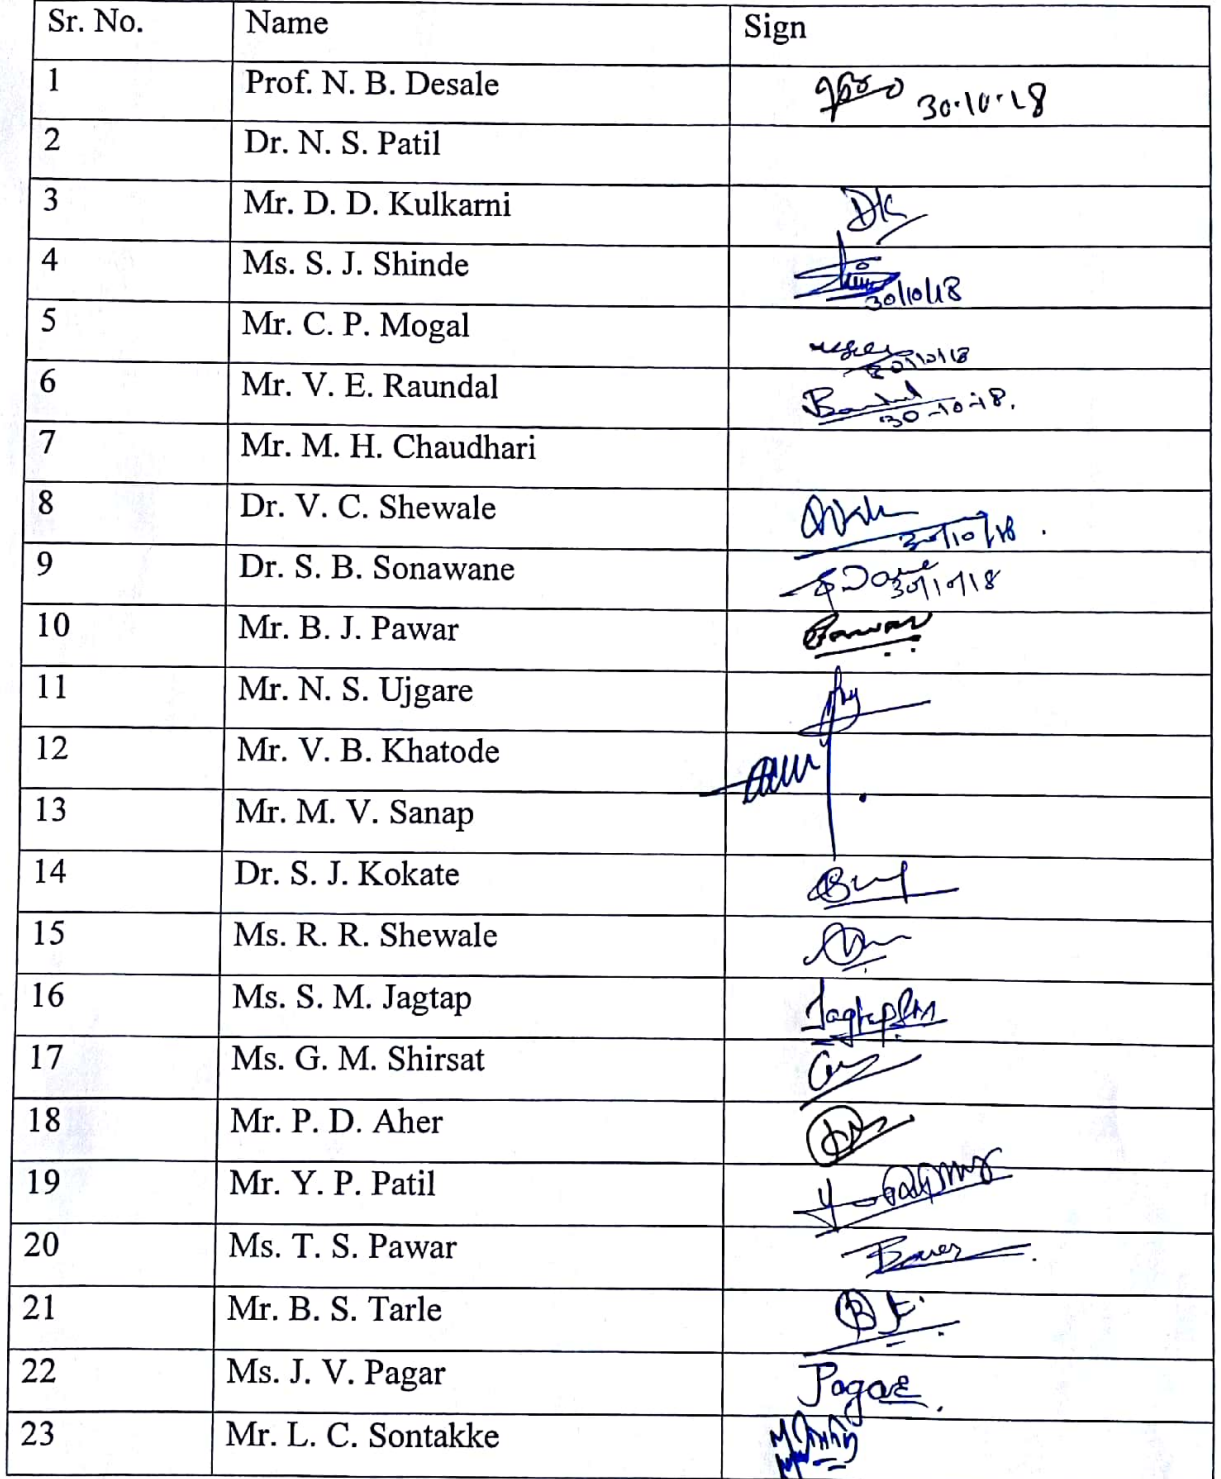 Sr. No. Name Sign
1 Prof. N. B. Desale 30-10-18
2 Dr. N. S. Patil
3 Mr. D. D. Kulkarni DK
4 Ms. S. J. Shinde 30/10/18
5 Mr. C. P. Mogal 30/10/18
6 Mr. V. E. Raundal 30-10-18.
7 Mr. M. H. Chaudhari
8 Dr. V. C. Shewale 30/10/18.
9 Dr. S. B. Sonawane 30/10/18
10 Mr. B. J. Pawar Pawar
11 Mr. N. S. Ujgare
12 Mr. V. B. Khatode
13 Mr. M. V. Sanap
14 Dr. S. J. Kokate
15 Ms. R. R. Shewale
16 Ms. S. M. Jagtap Jagtap SM
17 Ms. G. M. Shirsat
18 Mr. P. D. Aher
19 Mr. Y. P. Patil
20 Ms. T. S. Pawar
21 Mr. B. S. Tarle
22 Ms. J. V. Pagar Pagar
23 Mr. L. C. Sontakke